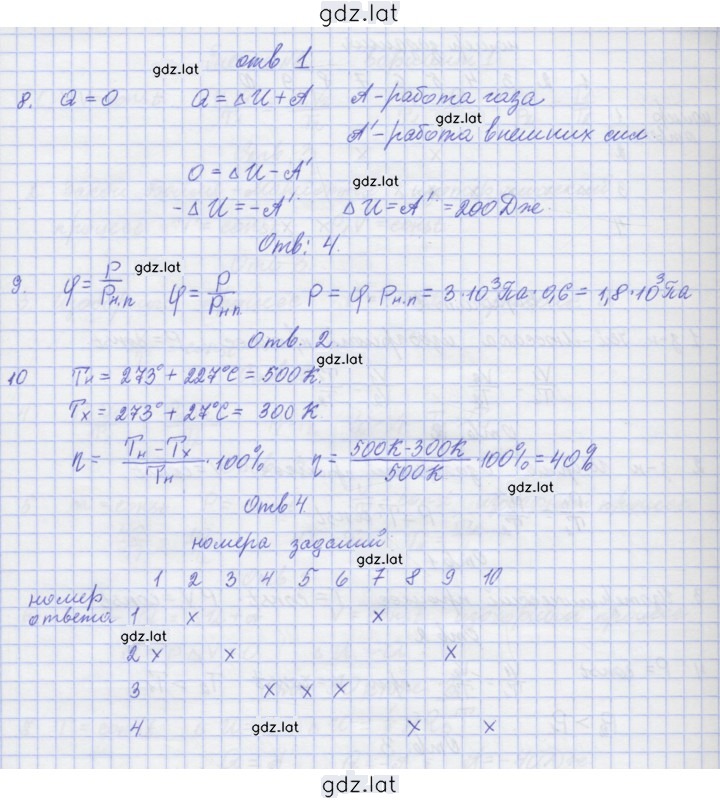 gdz.lat
отв 1
gdz.lat
8. Q = 0 Q = ΔU + A A - работа газа
gdz.lat
A' - работа внешних сил.
0 = ΔU - A'
gdz.lat
-ΔU = -A' ΔU = A' = 200 Дж.
Отв: 4.
gdz.lat
9. φ = P/Pн.п φ = P/Pн.п P = φ · Pн.п = 3·10³Па · 0,6 = 1,8·10³Па
Отв. 2.
gdz.lat
10 Tн = 273° + 227°C = 500К.
Tх = 273° + 27°C = 300К
η = (Tн - Tх)/Tн · 100% η = (500К - 300К)/500К · 100% = 40%
gdz.lat
Отв 4.
номера заданий
gdz.lat
1 2 3 4 5 6 7 8 9 10
номер
ответа 1 x x
gdz.lat
2 x x x
3 x x x
4 x x
gdz.lat
gdz.lat